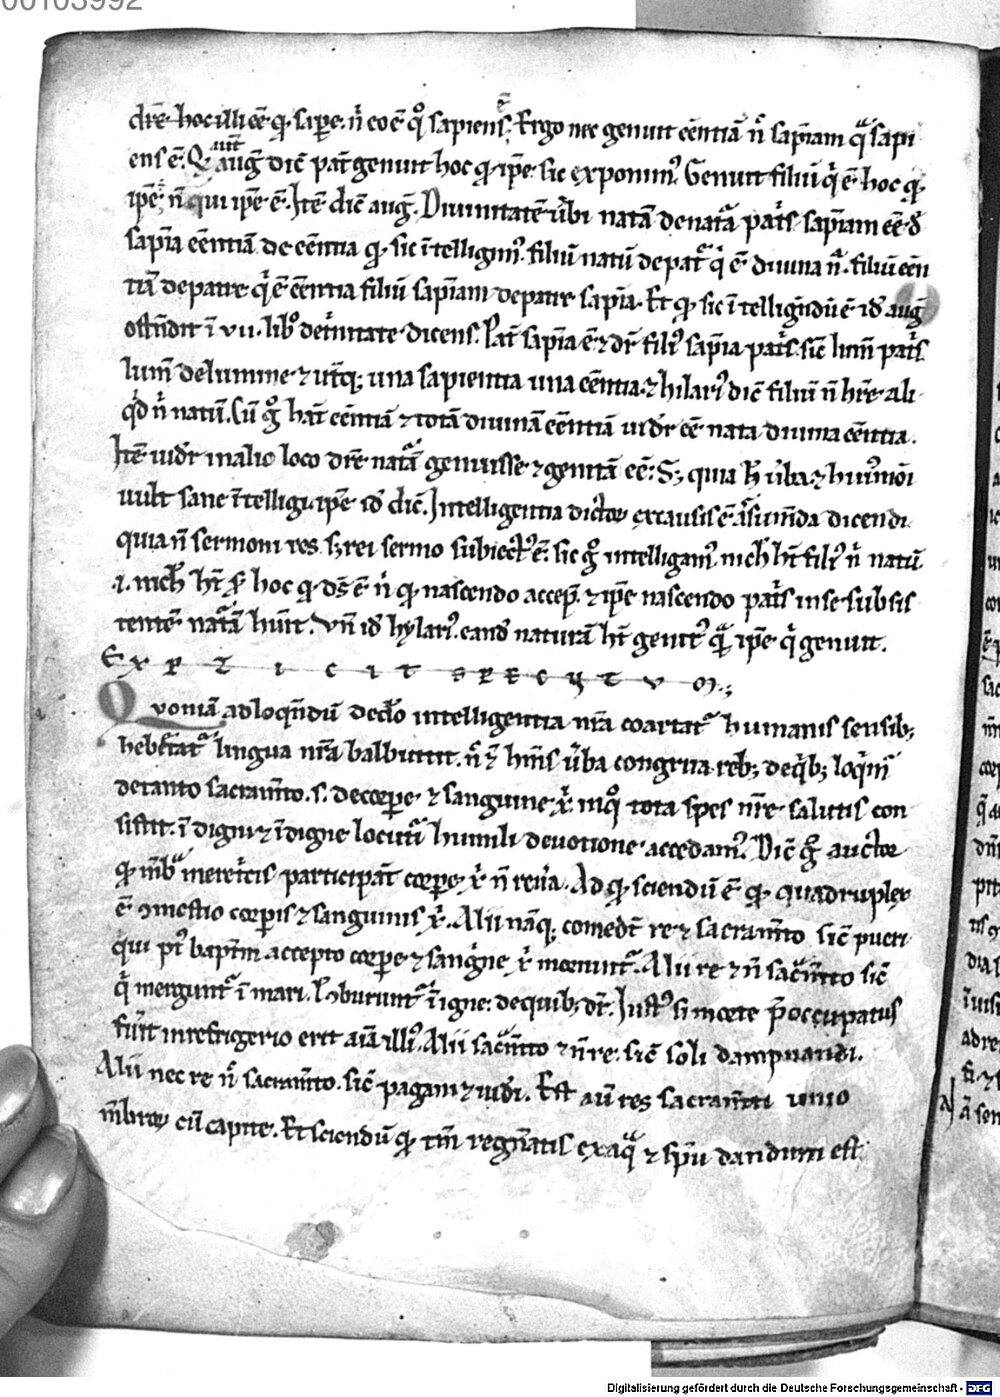 00103992
dr̄e hoc illi ēe ꝙ saꝑe. n̄ eo ē qͦ sapiens ē. Ergo nec genuit eēntiā n̄ sap̄iam qᷓ sapi
ens ē. Q aut̄ auḡ dic̄ pat̄ genuit hoc ꝙ ip̄e. sic exponim᷒. Genuit filiū qͥ ē hoc ꝙ
ip̄e. n̄ qui ip̄e ē. Itē dic̄ auḡ. Diuinitatē ūbi natā de natᷓa pat͛s sap̄iam ēe. đ
sap̄ia eēntiā de eēntia ꝙ sic ītelligim᷒. filiū natū de patᷓ qͥ ē diuina n̄. filiū eēn
tiā de patre qͥ ē eēntia filiū sap̄iam de patre sap̄ia. Et ꝙ sic ītelligēdū ē id̄ auḡ
ostn̄dit ī vii. libͦ de t͛nitate dicens. Pat̄ sap̄ia ē ⁊ dr̄ fili᷒ sap̄ia pat͛s. sic̄ lum̄ pat͛s
lum̄ de lumine ⁊ ut̄qꝫ una sapientia una eēntia. ⁊ hilari᷒ dic̄ filiū n̄ hr̄e ali
qͥd n̄ natū. Cū gͦ hat̄ eēntiā ⁊ totā diuinā eēntiā uidr̄ ēe nata diuina eēntia.
Itē uidr̄ in alio loco dr̄e natᷓā genuisse ⁊ genitā ēe. Sꝫ quia ħ ūba ⁊ hui᷒mōi
uult sane ītelligi. ip̄e id̄ dic̄. Intelligentia dictoꝝ ex causis ē assumēda dicendi
quia n̄ sermoni res. sꝫ rei sermo subiect᷒ ē. sic gͦ intelligam᷒ nich̄ ht̄ fili᷒ n̄ natū
.i. nich̄ ht̄ s hoc ꝙ ds̄ ē n̄ ꝙ nascendo accep̄. ⁊ ip̄e nascendo pat͛s in se subsis
tentē natᷓā hūit. Vn̄ id̄ hylari᷒. eand̄ naturā ht̄ genit᷒ qᷓ ip̄e qͥ genuit.
E x p l i c i t s p e c u l u m.;
Quoniā ad loqn̄dū de deo intelligentia nr̄a coartatᷓ humanis sensibꝫ
hebetatᷓ lingua nr̄a balbuttit. n̄ ⁊ hīnis ūba congrua rebꝫ de qͥbꝫ loqͥm̄
de tanto sacram̄to. s. de corꝑe ⁊ sanguine x͛ in qͦ tota spes nr̄e salutis con
sistit. ī digni ⁊ īdigne locuti humili deuotione accedam᷒. Dic̄ gͦ auctor
ꝙ mēbᷓ meret͛cis participāt corꝑe x͛ n̄ re ūa. Ad ꝙ sciendū ē ꝙ quadruplex
ē ꝯmestio corꝑis ⁊ sanguinis x͛. Alii nāqꝫ comedt̄ re ⁊ sacram̄to sic̄ pueri
qui p᷒t baptm̄ accepto corꝑe ⁊ sangͥne x͛ moriunt᷑. Alii re ⁊ n̄ sac͛m̄to sic̄
qͥ mergunt᷑ ī mari. ł ꝯburunt᷑ ī igne. de quibꝫ dr̄. Iust᷒ si morte p̄occupatus
fuit̄ in refrigerio erit aīa illi᷒. Alii sac͛m̄to ⁊ n̄ re. sic̄ soli dampnandi.
Alii nec re n̄ sacram̄to. sic̄ pagani ⁊ iudi. Est aū res sacram̄ti unio
mēbroꝝ cū capite. Et sciendū ꝙ tm̄ regn̄atis ex aqᷓ ⁊ sp̄u dandum est
Digitalisierung gefördert durch die Deutsche Forschungsgemeinschaft - DFG